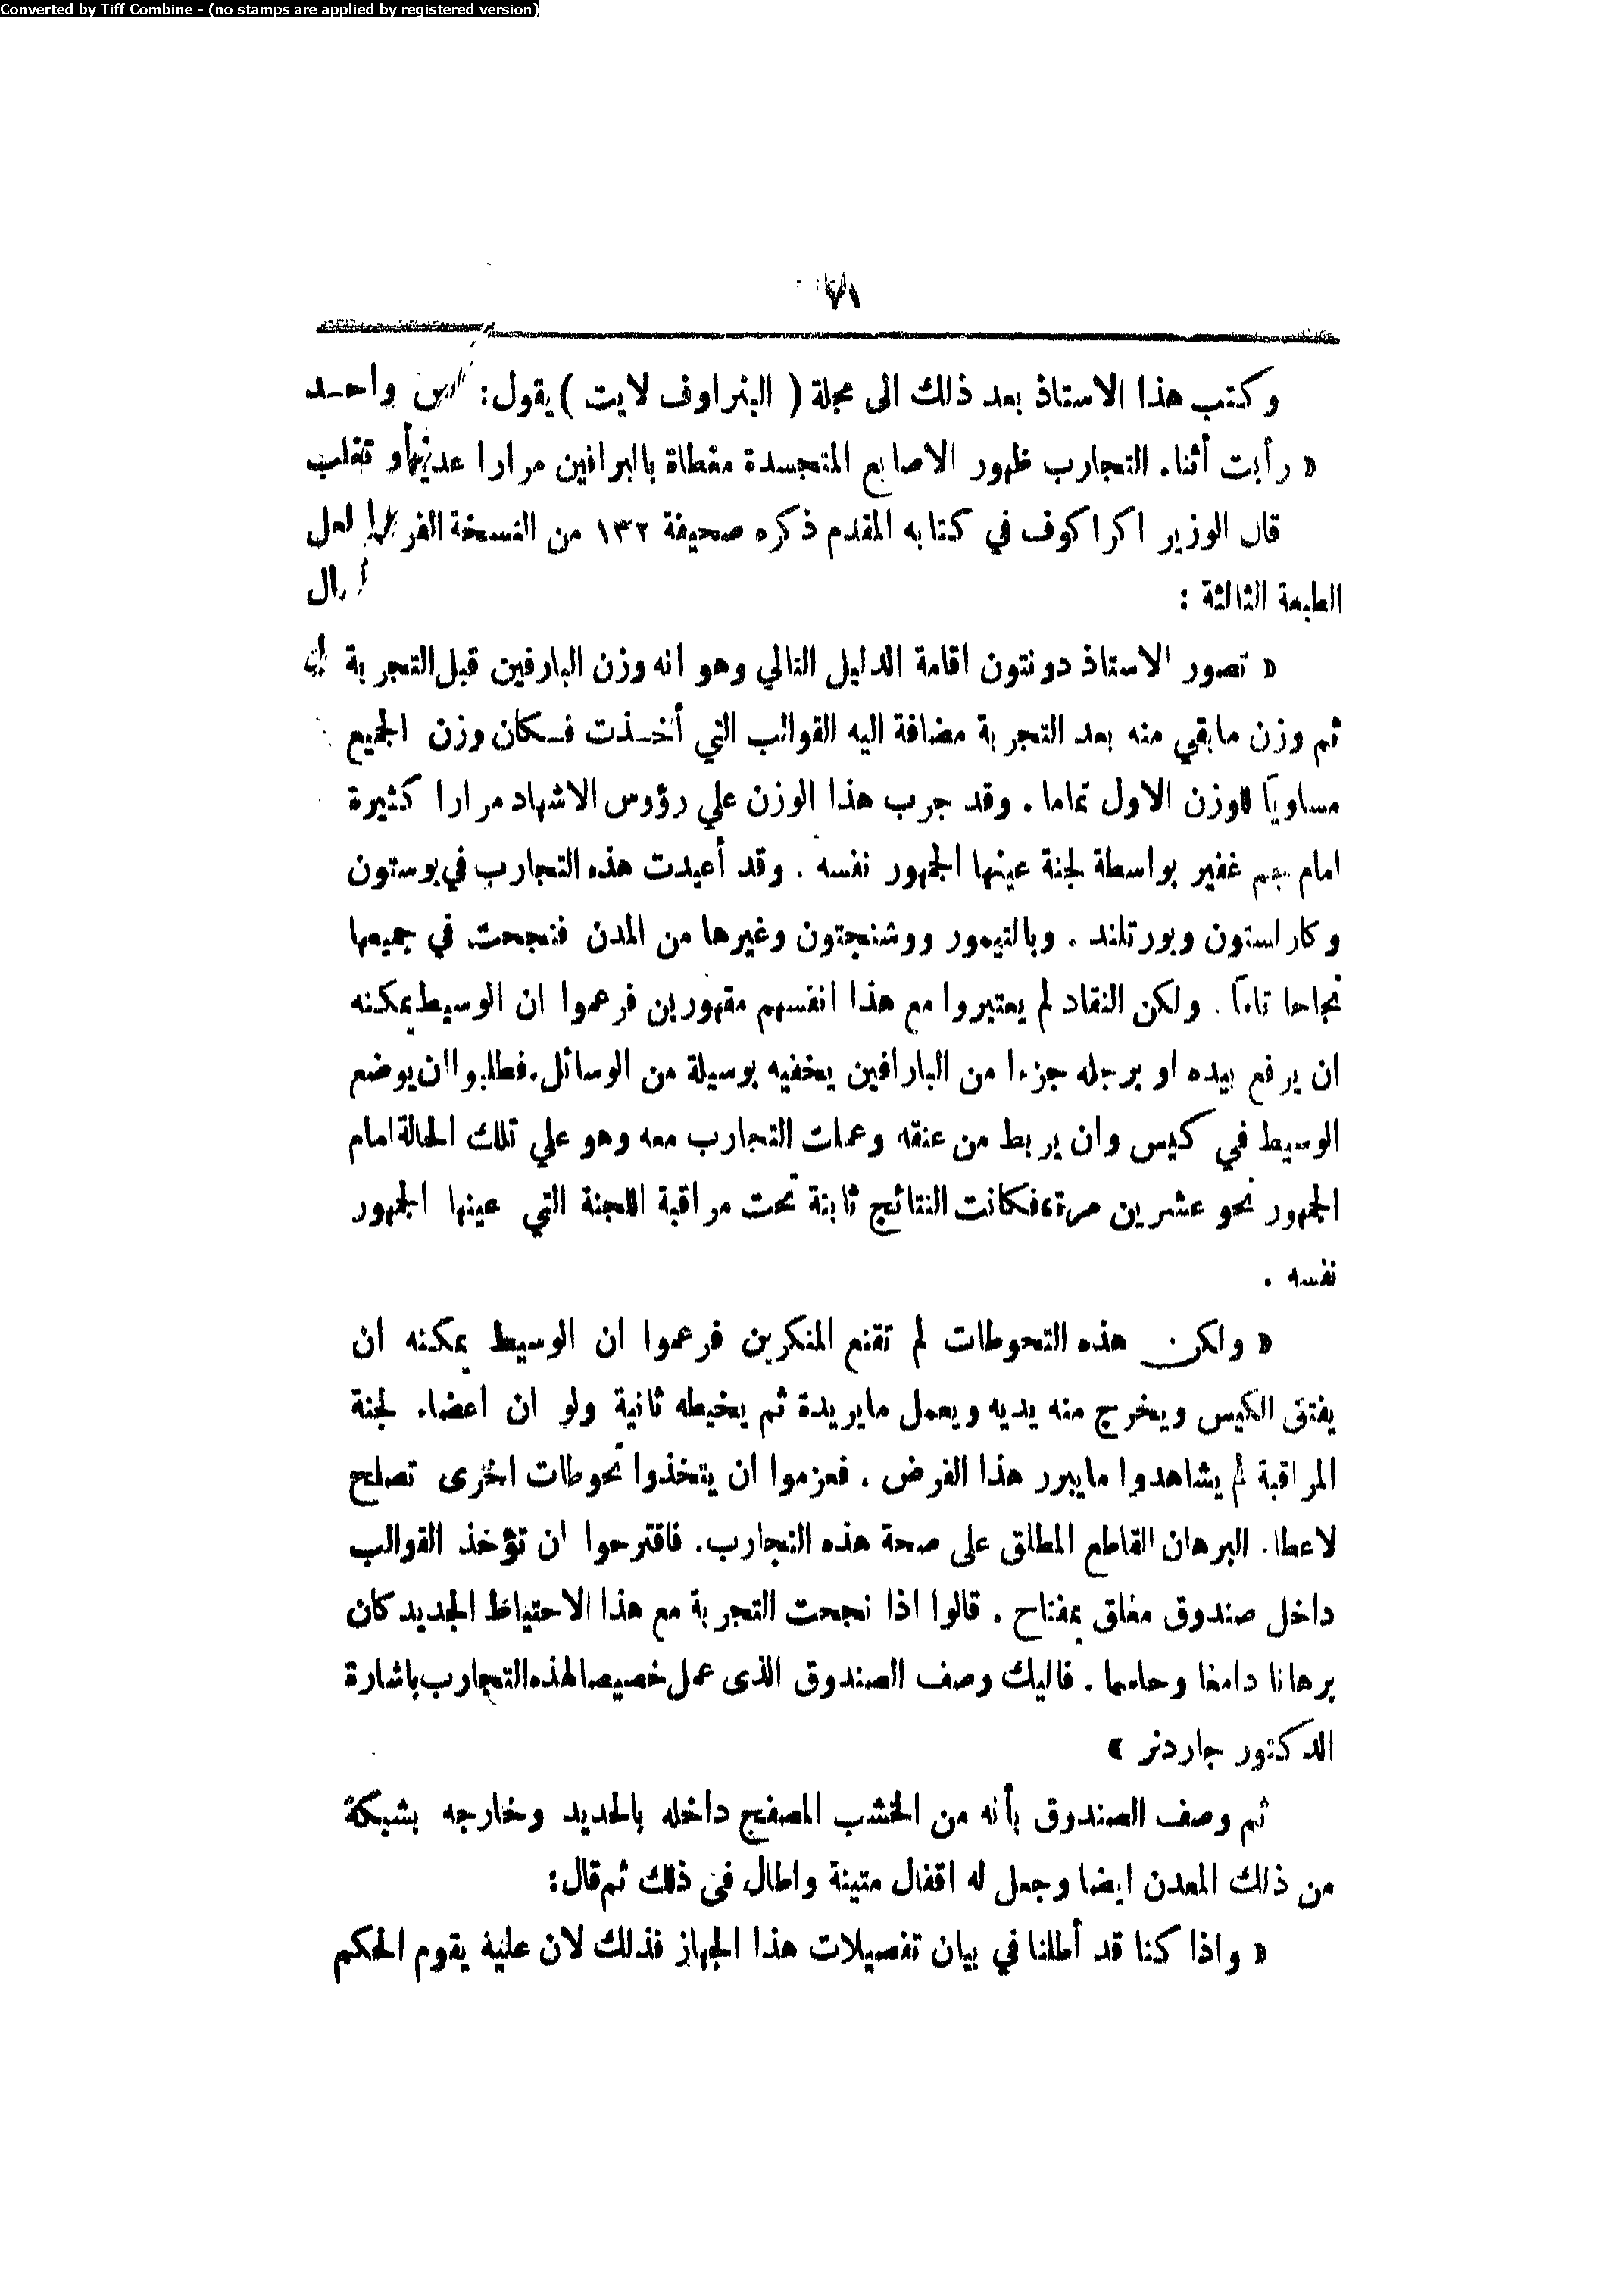 Converted by Tiff Combine - (no stamps are applied by registered version)
٧١
وكتب هذا الاستاذ بعد ذلك الى مجلة ( البنراوف لايت ) يقول: واحـد
« رأيت أثناء التجارب ظهور الاصابع المتجسدة مغطاة بالبرافين مرارا تغلب
قال الوزير اكراكوف في كتابه المقدم ذكره صحيفة ١٣٢ من النسخة لعل
الطبعة الثالثة :
« تصور الاستاذ دونتون اقامة الدليل التالي وهو انه وزن البارفين قبل التجربة
ثم وزن مابقي منه بعد التجربة مضافة اليه القوالب التي أخـذت فـكان وزن الجميع
مساوياً للوزن الاول تماما . وقد جرب هذا الوزن علي رؤوس الاشهاد مرارا كثيرة
امام جم غفير بواسطة لجنة عينها الجمهور نفسه . وقد أعيدت هذه التجارب في بوستون
وكارلستون وبورتلند . وبالتيمور ووشنجتون وغيرها من المدن فنجحت في جميعها
نجاحا تاماً . ولكن النقاد لم يعتبروا مع هذا انفسهم مقهورين فزعموا ان الوسيط يمكنه
ان يرفع بيده او برجله جزءا من البارافين يخفيه بوسيلة من الوسائل. فطلبوا ان يوضع
الوسيط في كيس وان يربط من عنقه وعملت التجارب معه وهو علي تلك الحالة امام
الجمهور نحو عشرين مرة، فكانت النتائج ثابتة تحت مراقبة اللجنة التي عينها الجمهور
نفسه .
« ولكن هذه التحوطات لم تقنع المنكرين فزعموا ان الوسيط يمكنه ان
يفتق الكيس ويخرج منه يديه ويعمل مايريدة ثم يخيطه ثانية ولو ان اعضاء لجنة
المراقبة لم يشاهدوا مايبرر هذا الفرض . فعزموا ان يتخذوا تحوطات اخرى تصلح
لاعطاء البرهان القاطع المطلق على صحة هذه التجارب. فاقترحوا ان تؤخذ القوالب
داخل صندوق مغلق بمفتاح . قالوا اذا نجحت التجربة مع هذا الاحتياط الجديد كان
برهانا دامغا وحاسما . فاليك وصف الصندوق الذى عمل خصيصا لهذه التجارب باشارة
الدكتور جاردنر »
ثم وصف الصندوق بأنه من الخشب المصفح داخله بالحديد وخارجه بشبكة
من ذلك المعدن ايضا وجعل له اقفال متينة واطال في ذلك ثم قال:
« واذا كنا قد أطلنا في بيان تفصيلات هذا الجهاز فذلك لان علية يقوم الحكم